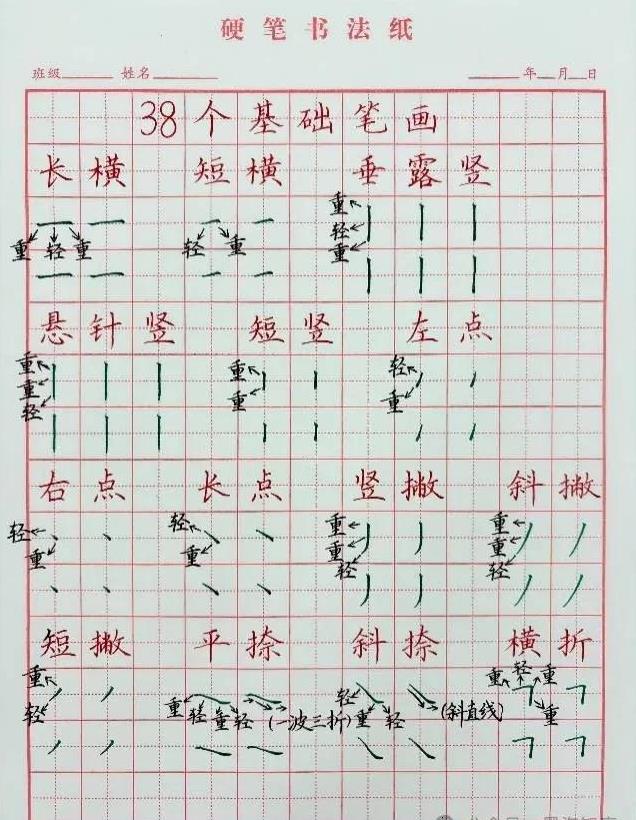 硬笔书法纸
班级 姓名 年 月 日
38个基础笔画
长横 短横 垂露竖
重 轻 重 轻 重 重 轻 重
悬针竖 短竖 左点
重 重 轻 重 重 轻 重
右点 长点 竖撇 斜撇
轻 重 轻 重 重 重 轻 重 重 轻
短撇 平捺 斜捺 横折
重 轻 重 轻 重 轻 (一波三折) 轻 重 轻 (斜直线) 重 轻 重 重